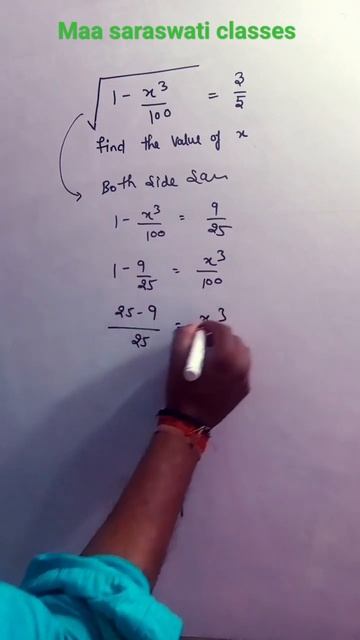 Maa saraswati classes
√(1 - x³/100) = 3/5
find the value of x
Both side
1 - x³/100 = 9/25
1 - 9/25 = x³/100
25 - 9/25 = x³